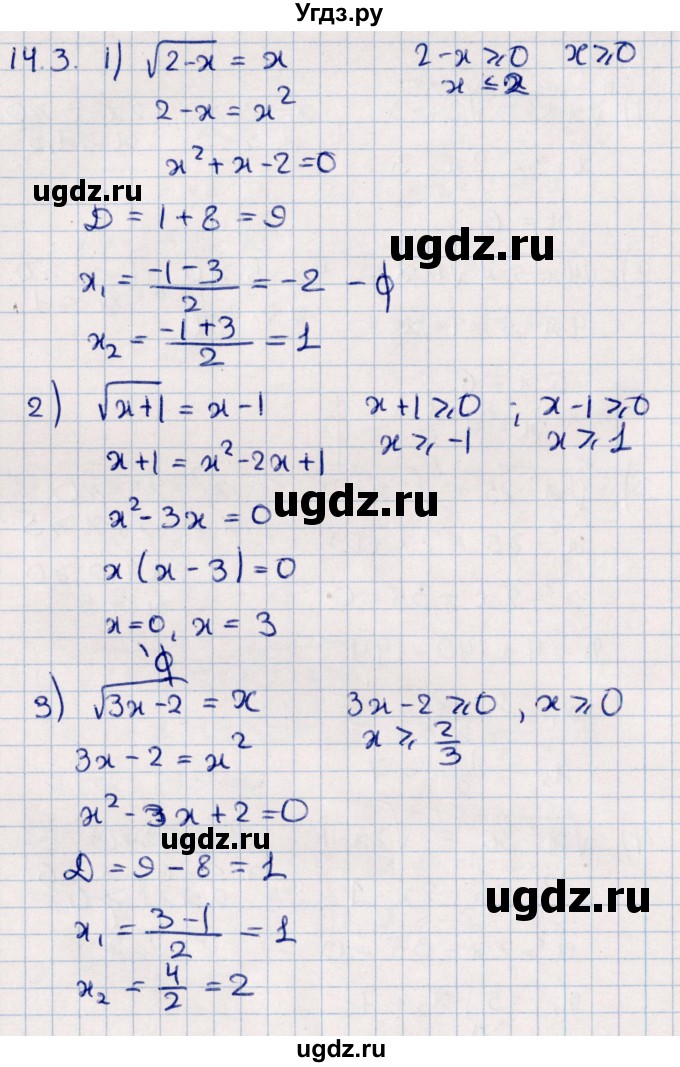 Угдз.ру
14.3. 1) √2-x = x    2-x ⩾ 0    x ⩾ 0
2-x = x²    x ≤ 2
x² + x - 2 = 0
ugdz.ru
D = 1 + 8 = 9
ugdz.ru
x₁ = (-1-3)/2 = -2 - ϕ
x₂ = (-1+3)/2 = 1
2) √x+1 = x-1    x+1 ⩾ 0 ; x-1 ⩾ 0
x+1 = x²-2x+1    x ⩾ -1    x ⩾ 1
ugdz.ru
x² - 3x = 0
x(x-3) = 0
x=0, x = 3
ϕ
ugdz.ru
3) √3x-2 = x    3x-2 ⩾ 0, x ⩾ 0
3x-2 = x²    x ⩾ 2/3
x² - 3x + 2 = 0
ugdz.ru
D = 9 - 8 = 1
ugdz.ru
x₁ = (3-1)/2 = 1
x₂ = 4/2 = 2
ugdz.ru